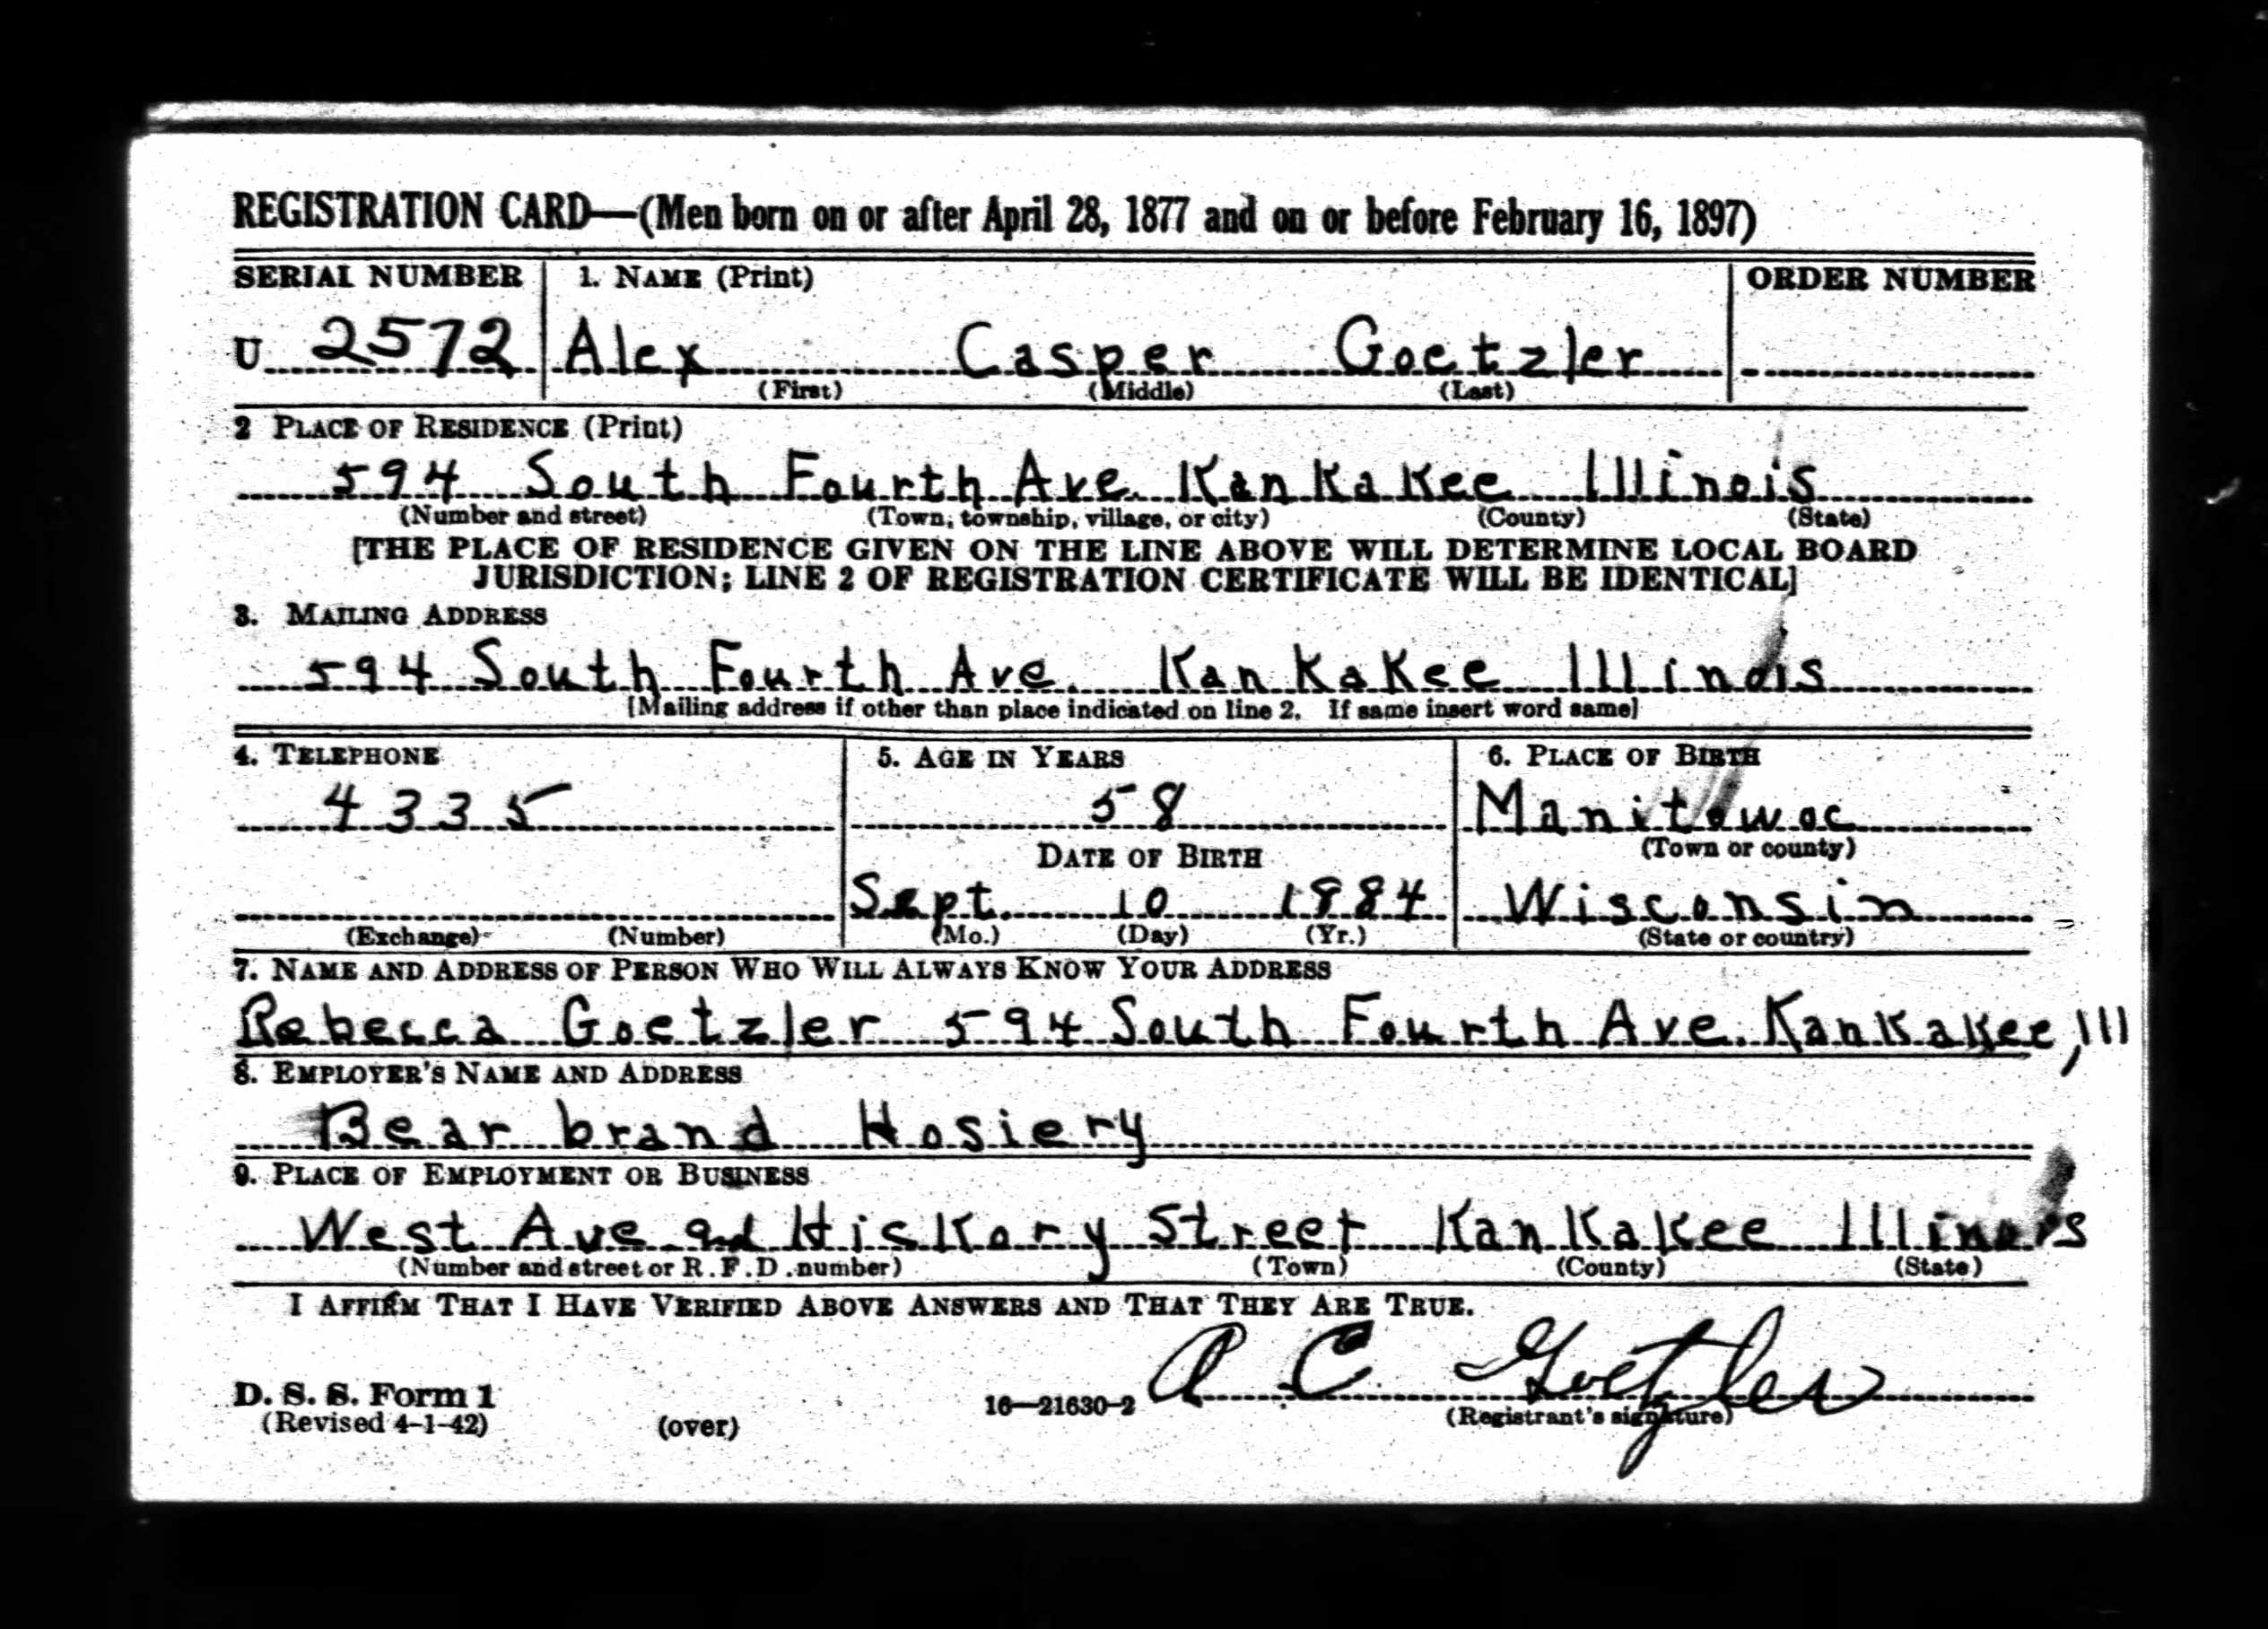 REGISTRATION CARD—(Men born on or after April 28, 1877 and on or before February 16, 1897)
SERIAL NUMBER 1. NAME (Print) ORDER NUMBER
U 2572 Alex Casper Goetzler
(First) (Middle) (Last)
2 PLACE OF RESIDENCE (Print)
594 South Fourth Ave. KanKaKee Illinois
(Number and street) (Town, township, village, or city) (County) (State)
[THE PLACE OF RESIDENCE GIVEN ON THE LINE ABOVE WILL DETERMINE LOCAL BOARD
JURISDICTION; LINE 2 OF REGISTRATION CERTIFICATE WILL BE IDENTICAL]
3. MAILING ADDRESS
594 South Fourth Ave. KanKaKee Illinois
[Mailing address if other than place indicated on line 2. If same insert word same]
4. TELEPHONE 5. AGE IN YEARS 6. PLACE OF BIRTH
4335 58 Manitowoc
DATE OF BIRTH (Town or county)
Sept. 10 1884 Wisconsin
(Exchange) (Number) (Mo.) (Day) (Yr.) (State or country)
7. NAME AND ADDRESS OF PERSON WHO WILL ALWAYS KNOW YOUR ADDRESS
Rebecca Goetzler 594 South Fourth Ave. KanKaKee, Ill
8. EMPLOYER'S NAME AND ADDRESS
Bear brand Hosiery
9. PLACE OF EMPLOYMENT OR BUSINESS
West Ave. and HicKory Street KanKaKee Illinois
(Number and street or R.F.D. number) (Town) (County) (State)
I AFFIRM THAT I HAVE VERIFIED ABOVE ANSWERS AND THAT THEY ARE TRUE.
A C Goetzler
D. S. S. Form 1 16—21630-2 (Registrant's signature)
(Revised 4-1-42) (over)